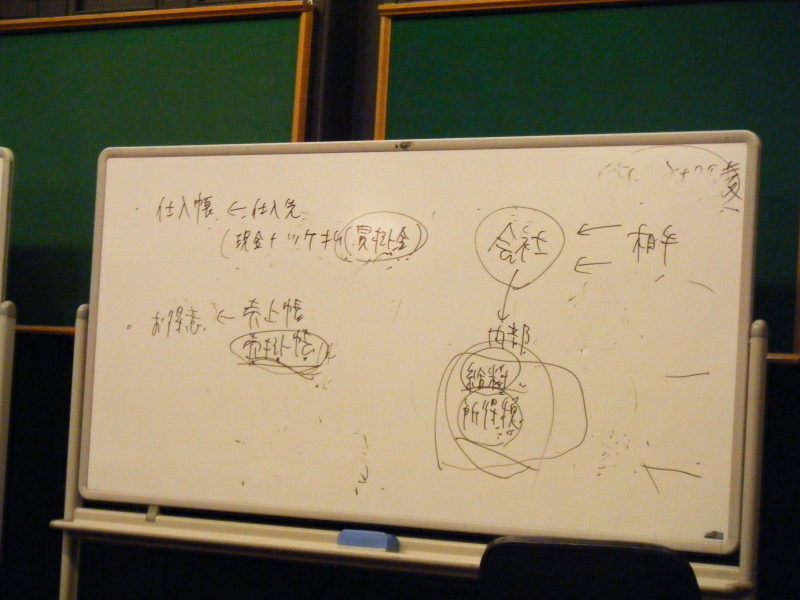 仕入帳 ← 仕入先
(現金+ツケ(買掛金)
お得意 ← 売上帳
売掛帳
会社 ← 相手
←
↓
内部
給料
所得税